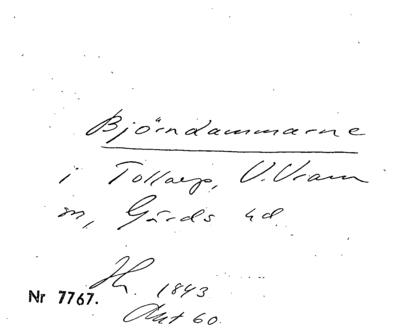 Björndammarne
i Tollarp, V. Vram
sn, Gärds hd.
Hr. 1843
Akt 60.
Nr 7767.